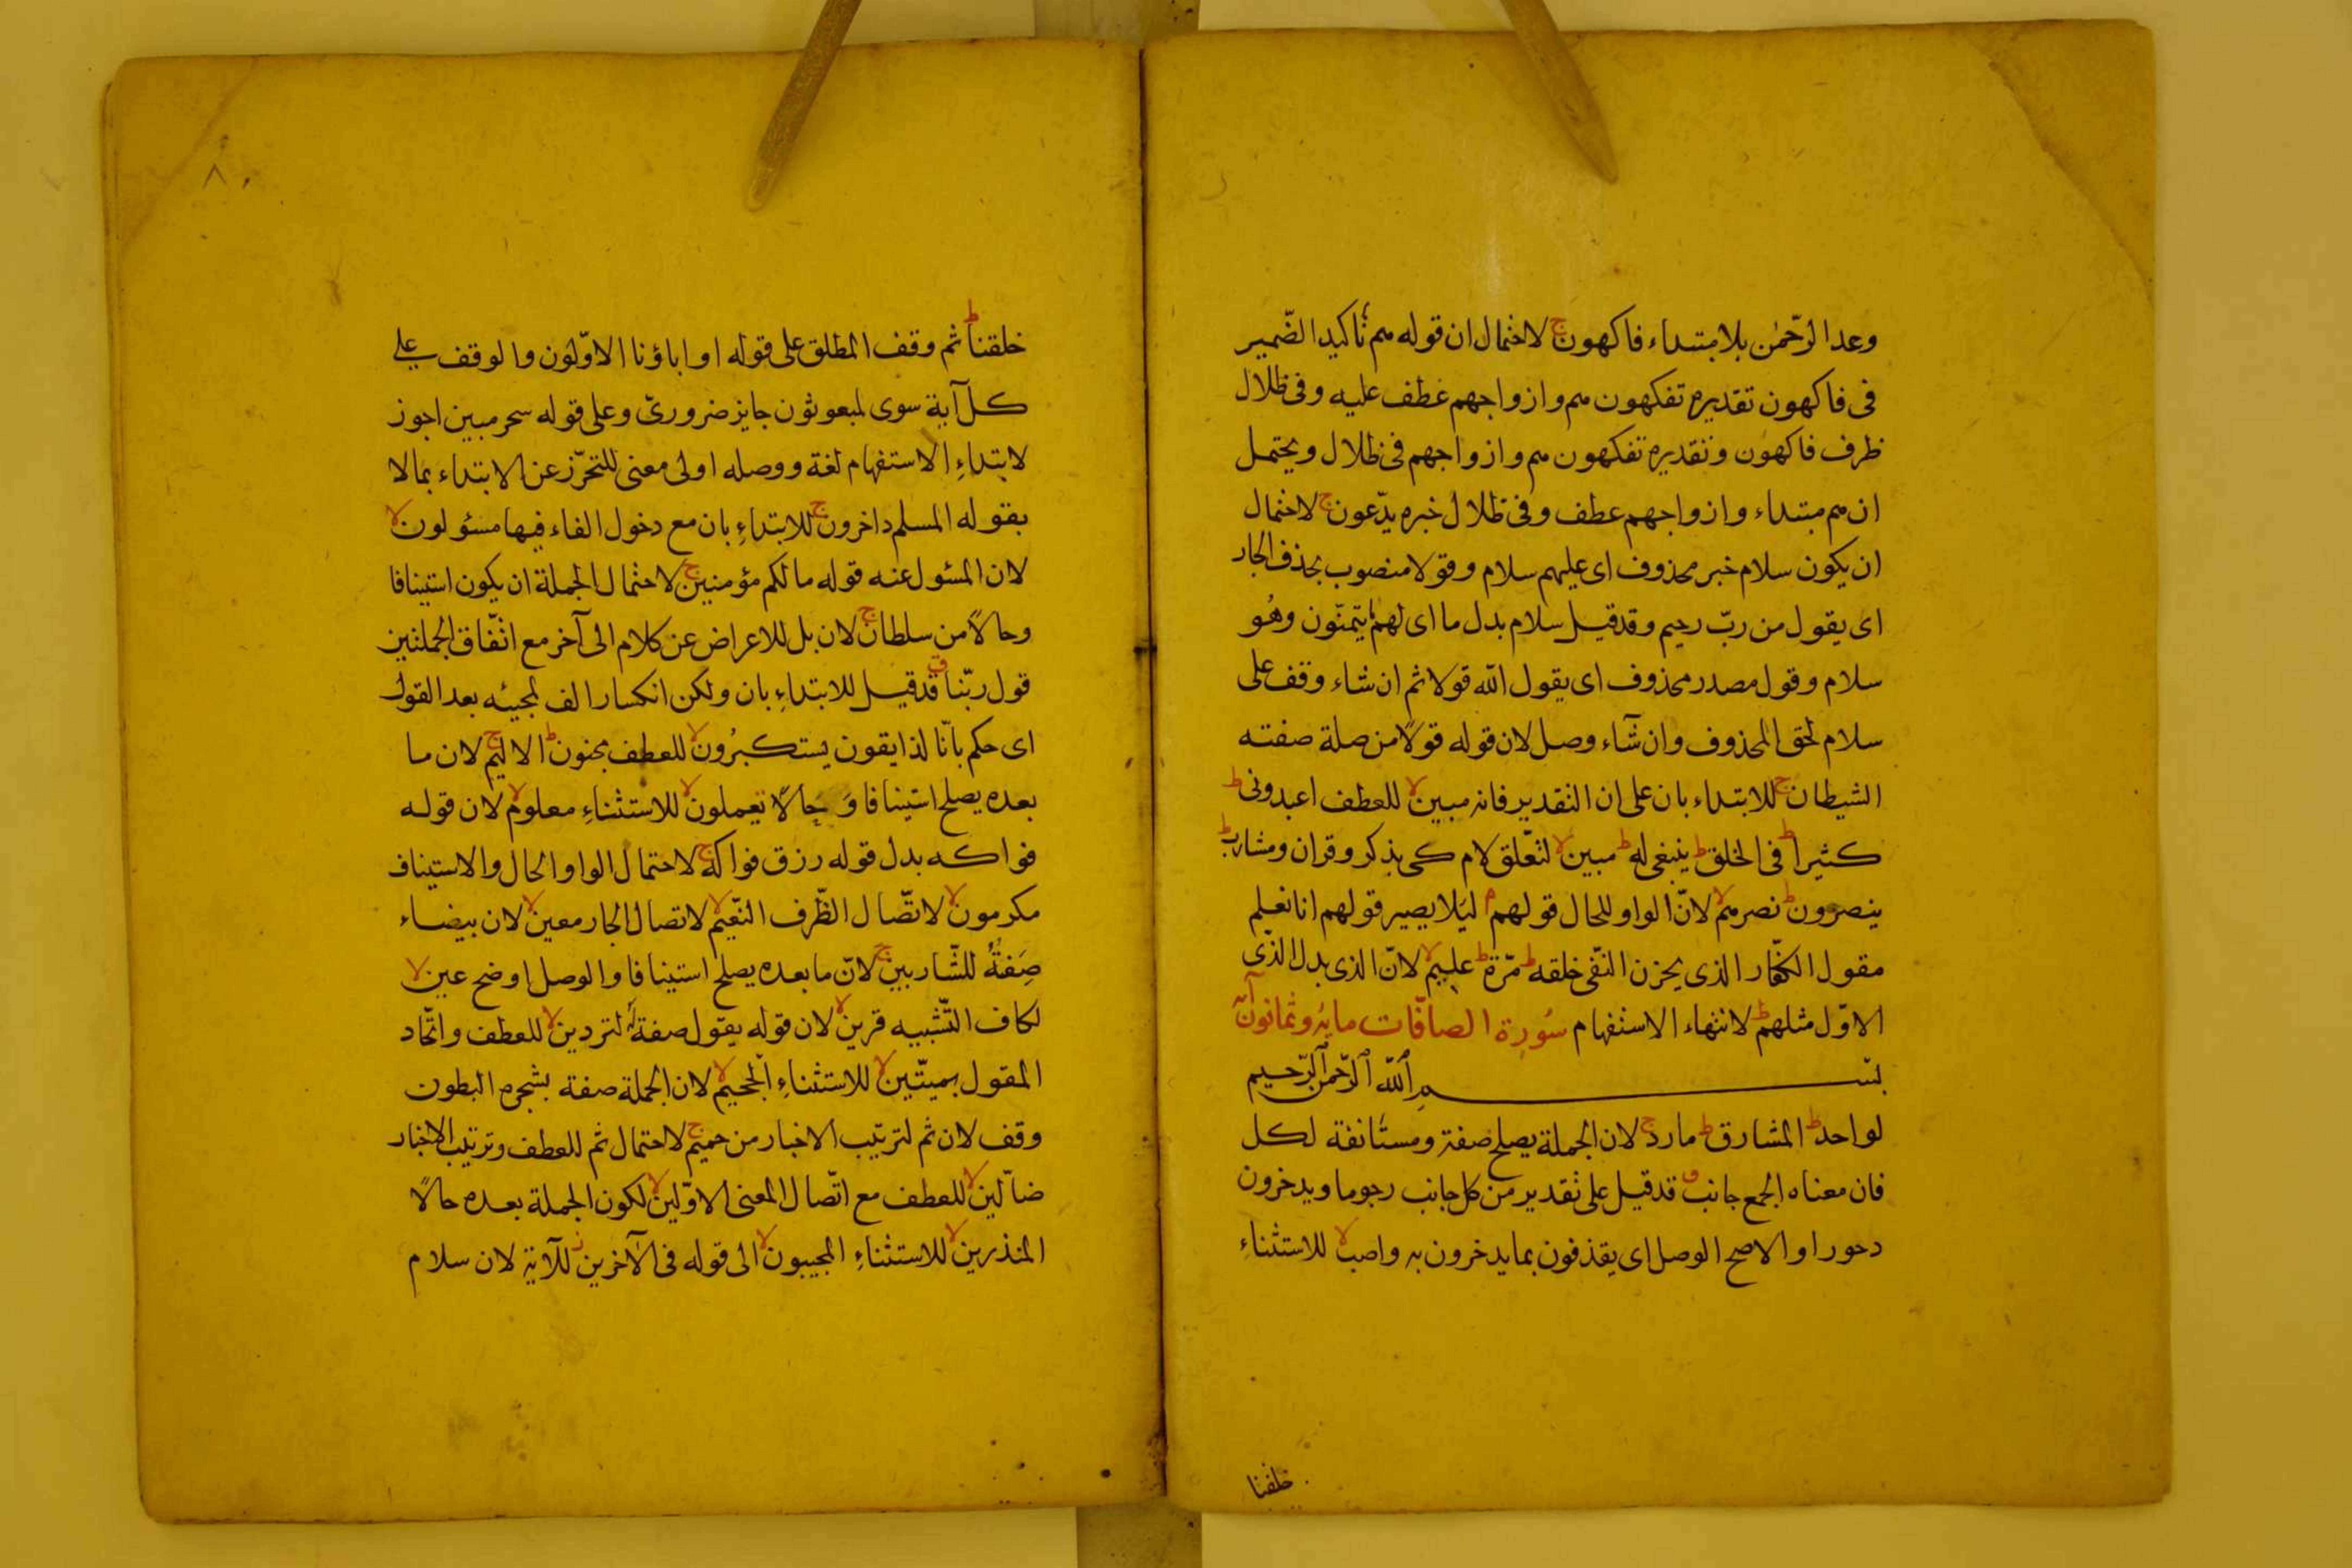 وعد الرّحمٰن بلا مبتداء فاكهون ج لاحتمال ان قوله هم تأكيد الضّمير
فى فاكهون تقديره تفكهون هم وازواجهم عطف عليه وفى ظلال
ظرف فاكهون وتقديره تفكهون هم وازواجهم فى ظلال ويحتمل
ان هم مبتداء وازواجهم عطف وفى ظلال خبره يدّعون ج لاحتمال
ان يكون سلام خبر محذوف اى عليهم سلام وقولا منصوب بحذف الجار
اى يقول من ربّ رحيم وقد قيل سلام بدل ما اى لهم ما يتمنّون وهُو
سلام وقول مصدر محذوف اى يقول الله قولا ثم ان شاء وقف على
سلام لحق المحذوف وان شآء وصل لان قوله قولًا من صلة صفته
الشيطان ج للابتداء بان على ان التقدير فانه مبين لا للعطف اعبدونى ط
كثيرا ط فى الخلق ط ينبغى له ط مبين لا لتعّلق لام كى بذكر وقران ومشارب ط
ينصرون ط نصرهم لا لانّ الواو للحال قولهم م ليَلا يصير قولهم انا نعلم
مقول الكفّار الذى يحزن النّفى خلقه ط مرّة ط عليم لا لانّ الذى بدل الذّى
الاوّل مثلهم ط لانتهاء الاستفهام سُورة الصافّات مايةُ وثمانون آية
بسم الله الرّحمن الرّحيم
لواحد ط المشارق ط مارد ج لان الجملة يصلح صفة ومستأنفة لكل
فان معناه الجمع جانب ق قد قيل على تقدير من كل جانب رجوما ويدخرون
دحورا والاصح الوصل اى يقذفون بما يدخرون به واصب لا للاستثناءِ
خلقنا
٨٠
خلقنا ط ثم وقف المطلق على قوله او اباؤنا الاوّلون والوقف على
كل آية سوى لمبعوثون جايز ضرورىّ وعلى قوله سحر مبين اجوز
لابتداءِ الاستفهام لغة ووصله اولى معنى للتحرّز عن الابتداء بما لا
بقوله المسلم داخرون ج للابتداءِ بان مع دخول الفاء فيها مسئولون لا
لان المسئول عنه قوله ما لكم مؤمنين ج لاحتمال الجملة ان يكون استينافا
وحالًا من سلطان ج لان بل للاعراض عن كلام الى آخر مع اتّفاق الجملتين
قول ربّنا ق قد قيل للابتداءِ بان ولكن انكسار الف لمجيئه بعد القول
اى حكم بانّا لذايقون يستكبرُون لا للعطف مجنون ط الاليم ج لان ما
بعده يصلح استينافا وَحَالًا تعملون لا للاستثناءِ معلوم لا لان قوله
فواكه بدل قوله رزق فواكه ج لاحتمال الواو الحال والاستيناف
مكرمون لا لاتّصال الظّرف النّعيم لا لاتصال الجار معين لا لان بيضاء
صِفةُ للشّاربين ج لانّ ما بعده يصلح استينافا والوصل اوضح عين لا
لكاف التّشبيه قرين لا لان قوله يقول صفة له لتردين لا للعطف واتّحاد
المقول بميتّين لا للاستثناءِ الجحيم لا لان الجملة صفة بشجره البطون
وقف لان ثم لترتيب الاخبار من حميم ج لاحتمال ثم للعطف وترتيب الاخبار
ضالّين لا للعطف مع اتّصال المعنى الاوّلين لا لكون الجملة بعده حالًا
المنذرين لا للاستثناءِ المجيبون لا الى قوله فى الآخرين ز للآية لان سلام